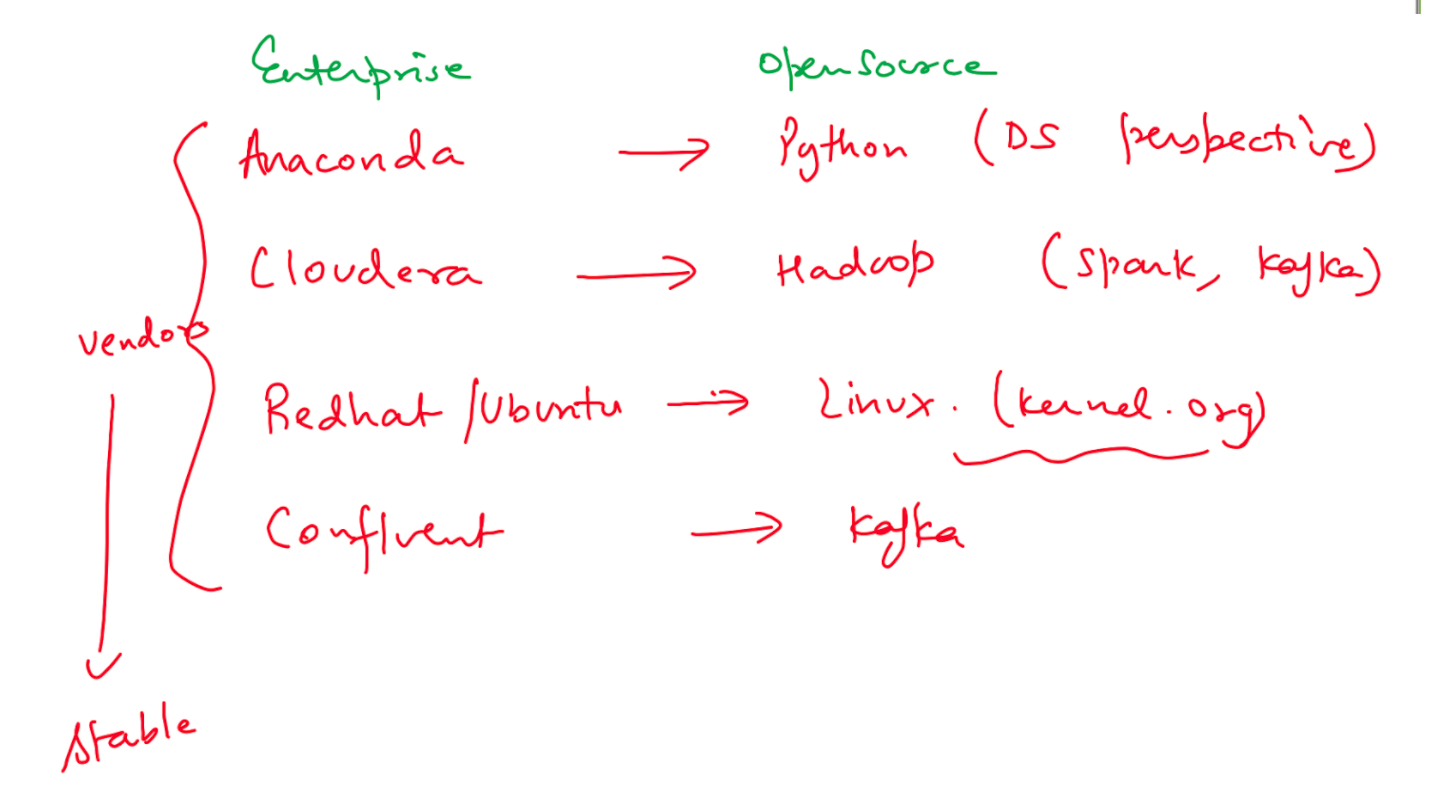 Enterprise Opensource
Anaconda → Python (DS perspective)
Cloudera → Hadoop (Spark, Kafka)
Vendor
Redhat/Ubuntu → Linux. (kernel.org)
Confluent → Kafka
Stable